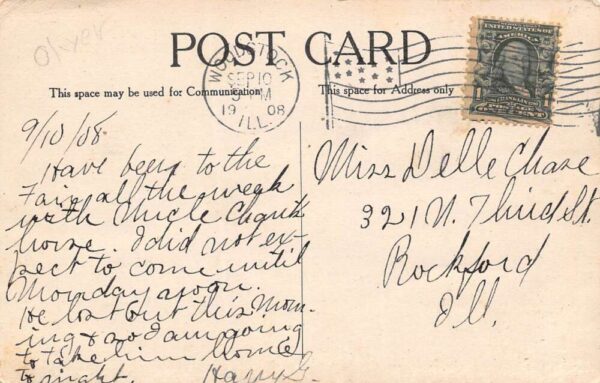 Oliver
POST CARD
WOODSTOCK
SEP 10
PM
1908
ILL.
This space may be used for Communication
This space for Address only
9/10/08
Have been to the
Fair all the week
with Uncle
horse. I did not ex-
pect to come until
Monday noon.
He lost out this Morn-
ing & so I am going
to take him home
to night. Harry G.
Miss Delle Chase
321 N. Third St.
Rockford
Ill.